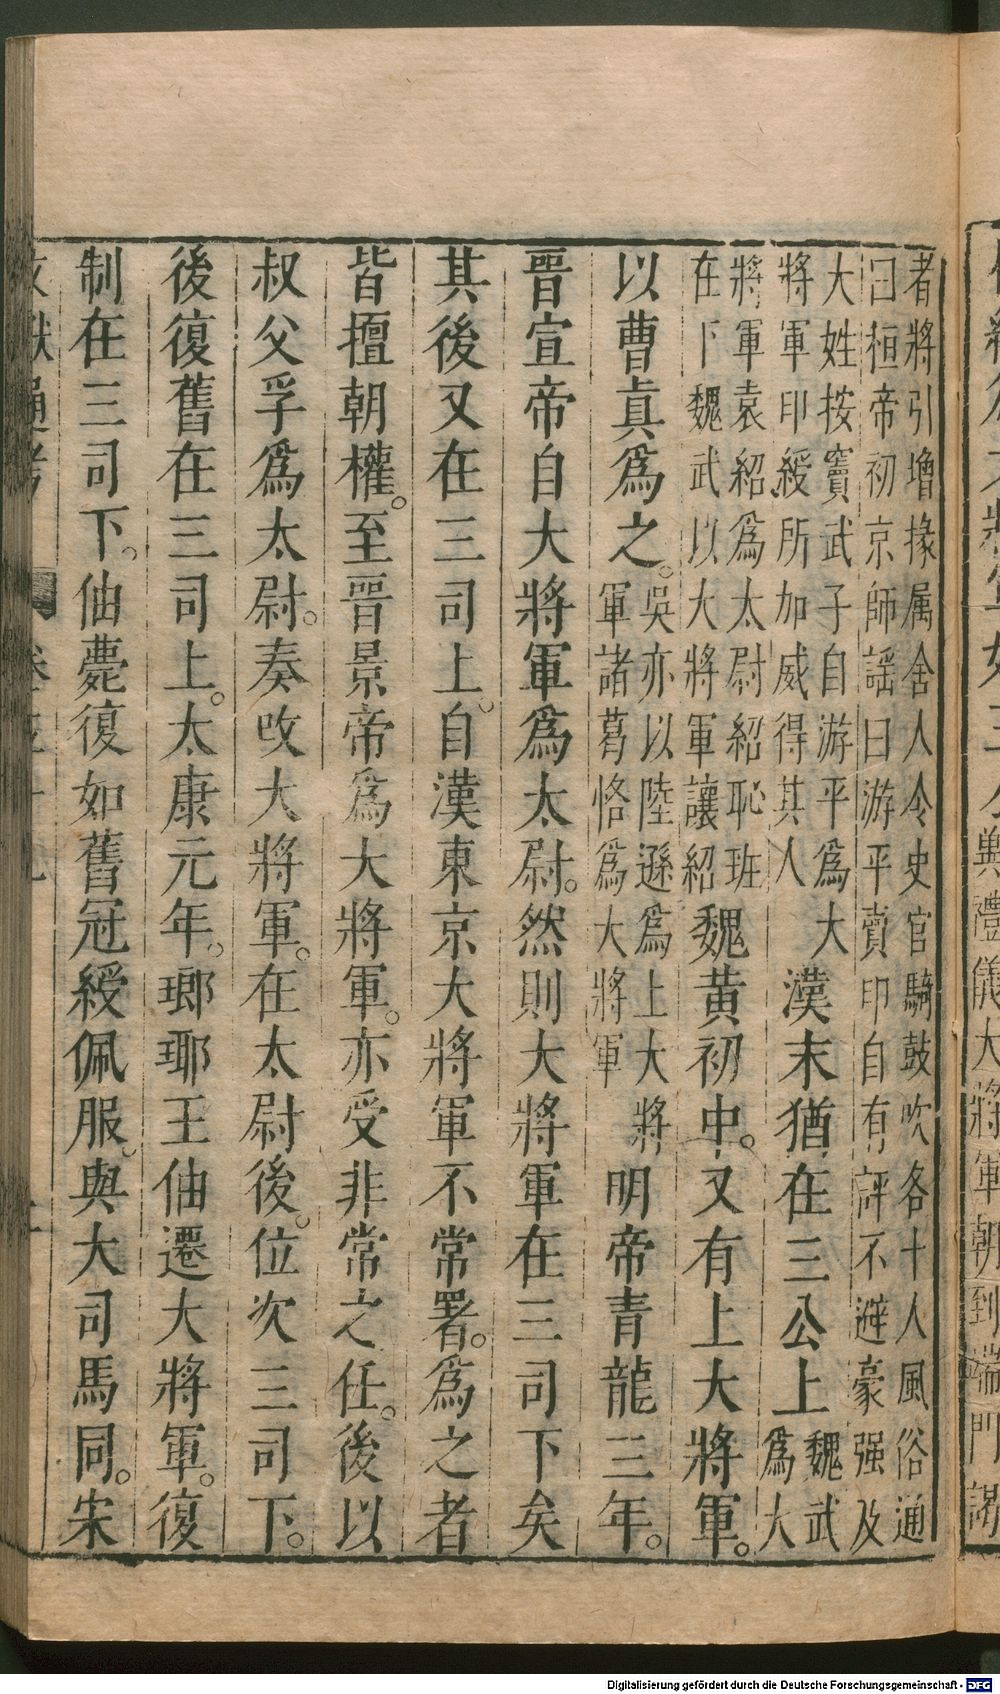 禮儀大將軍朝到端門謁
者將引增掾属舍人令史官騎鼓吹各十人風俗通
曰桓帝初京師謡曰游平賣印自有評不避豪强及
大姓按竇武子自游平爲大
將軍印綬所加威得其人
漢末猶在三公上
魏武
爲大
將軍袁紹爲太尉紹恥班
在下魏武以大將軍讓紹
魏黄初中。又有上大將軍。
以曹眞爲之。
吳亦以陸遜爲上大將
軍諸葛恪爲大將軍
明帝青龍三年。
晉宣帝自大將軍爲太尉。然則大將軍在三司下矣
其後又在三司上。自漢東京大將軍不常署。爲之者
皆擅朝權。至晉景帝爲大將軍。亦受非常之任。後以
叔父孚爲太尉。奏改大將軍。在太尉後。位次三司下。
後復舊在三司上。太康元年。瑯琊王伷遷大將軍。復
制在三司下。伷薨復如舊冠綬佩服。與大司馬同。宋
文獻通考
Digitalisierung gefördert durch die Deutsche Forschungsgemeinschaft - DFG